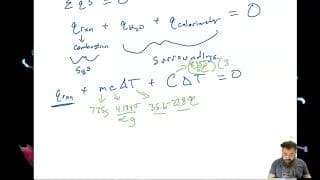 Σ q's = 0
q rxn + q H₂O + q calorimeter = 0
combustion
Sys
Surroundings
q rxn + mcΔT + CΔT = 0
775g 4.184J 35.6-23.8°C
°C g